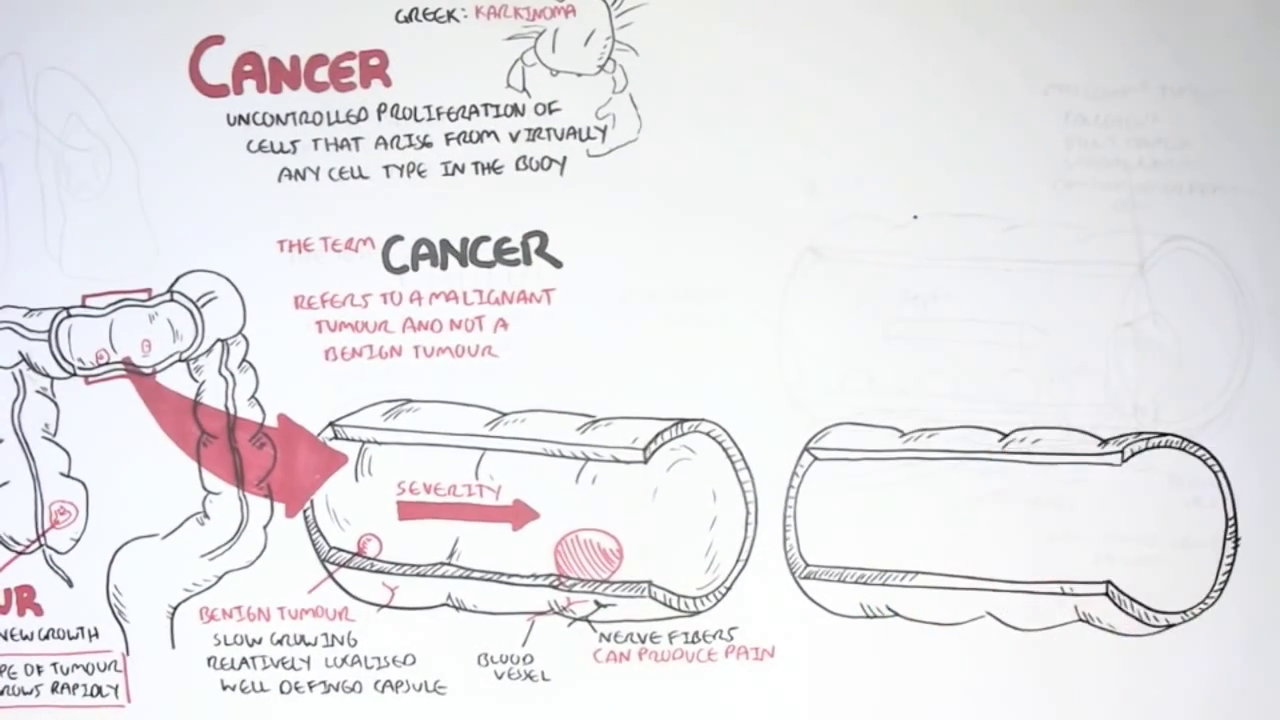 GREEK: KARKINOMA
CANCER
UNCONTROLLED PROLIFERATION OF
CELLS THAT ARISE FROM VIRTUALLY
ANY CELL TYPE IN THE BODY
THE TERM CANCER
REFERS TO A MALIGNANT
TUMOUR AND NOT A
BENIGN TUMOUR
SEVERITY
UR
NEW GROWTH
PE OF TUMOUR
ROWS RAPIDLY
BENIGN TUMOUR
SLOW GROWING
RELATIVELY LOCALISED
WELL DEFINED CAPSULE
BLOOD
VESSEL
NERVE FIBERS
CAN PRODUCE PAIN